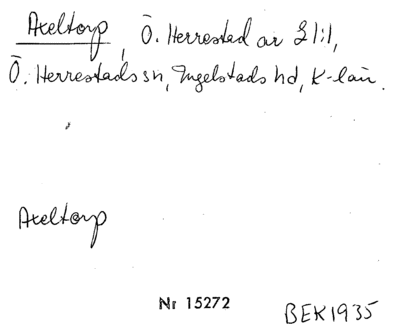 Axeltorp, Ö. Herrestad ar 21:1,
Ö. Herrestads sn, Ingelstads hd, K-län.
Axeltorp
Nr 15272
BEK1935